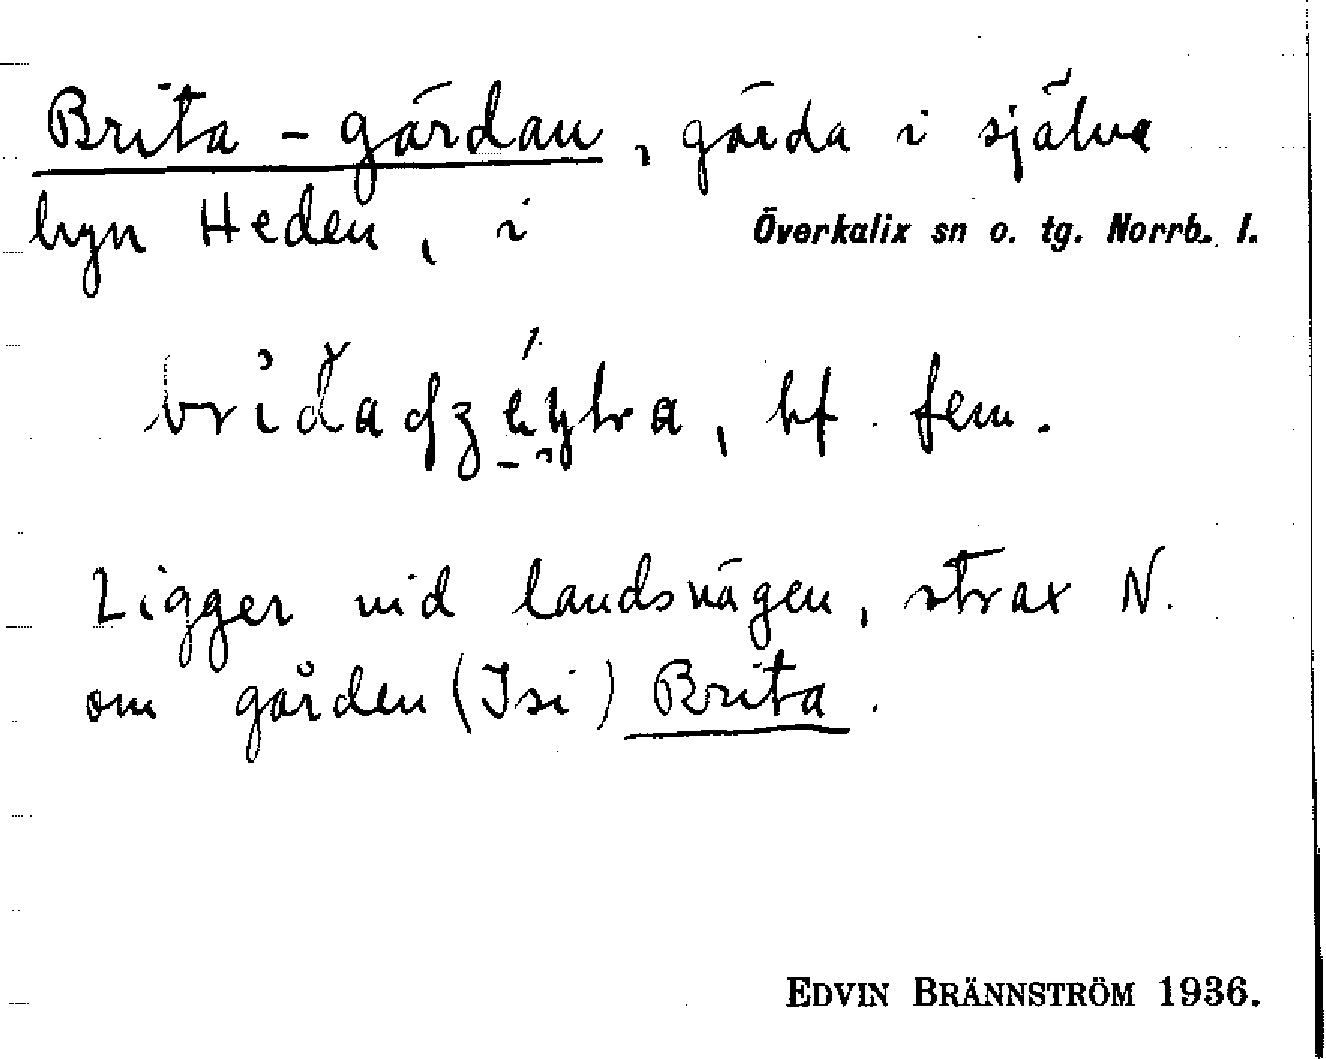 Brita-gärdan, gärda i själva
byn Heden, i Överkalix sn o. tg. Norrb. l.
bf. fem.
Ligger vid landsvägen, strax N.
om gården (Isi) Brita.
EDVIN BRÄNNSTRÖM 1936.